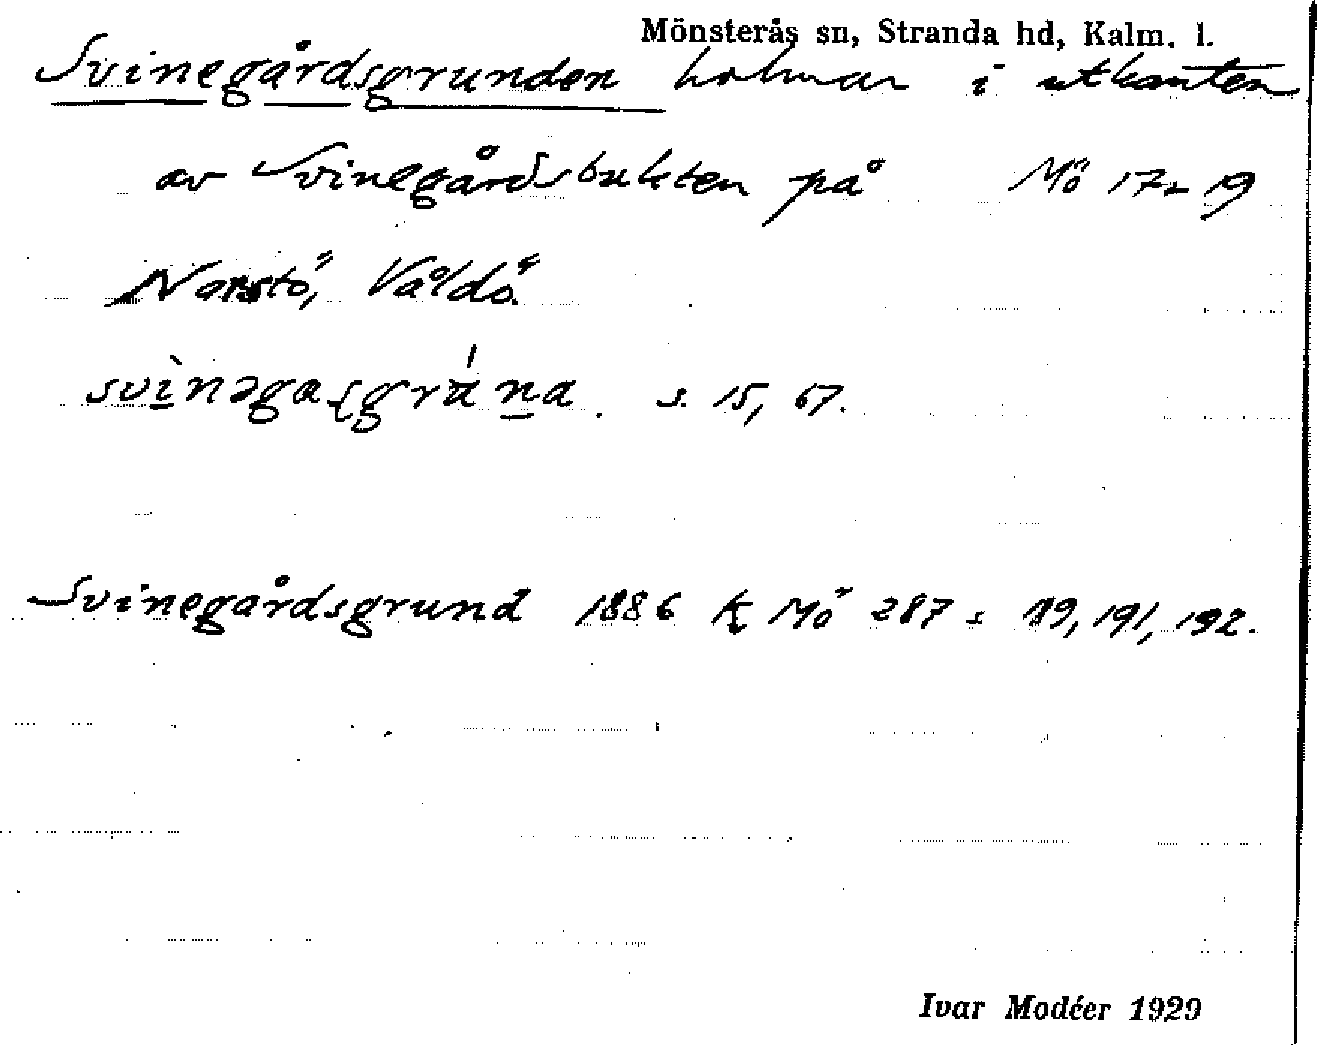 Mönsterås sn, Stranda hd, Kalm. l.
Svinegårdsgrunden holmar i utkanten
av Svinegårdsbukten på Mö 17 19
Norstö, Våldö.
s. 15, 67.
Svinegårdsgrund 1886 K Mö 287 s 189, 191, 192.
Ivar Modéer 1929